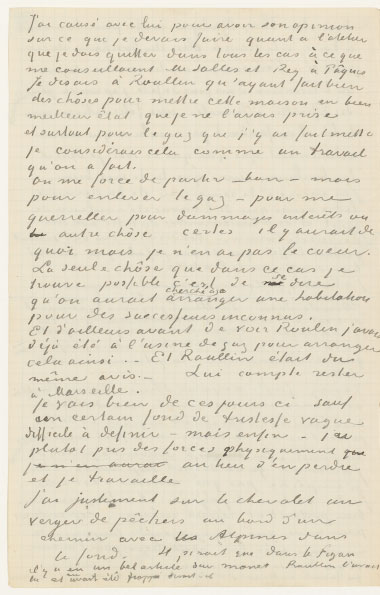 J'ai causé avec lui pour avoir son opinion
sur ce que je devais faire quant à l'atelier
que je dois quitter dans tous les cas à ce que
me conseillaient M. Salles et Rey à Pâques
Je disais à Roullin qu'ayant fait bien
des chôses pour mettre cette maison en bien
meilleur état que je ne l'avais prise
et surtout pour le gaz que j'y ai fait mettre
je considérais cela comme un travail
qu'on a fait.
On me force de partir – bon – mais
pour enlever le gaz – pour me
quereller pour dommages intérêts ou
autre chôse certes il y aurait de
quoi mais je n'en ai pas le coeur.
La seule chôse que dans ce cas je
trouve possible c'est de se dire
qu'on aurait cherché à arranger une habitation
pour des successeurs inconnus.
Et d'ailleurs avant de voir Roulin j'avais
déjà été à l'usine de gaz pour arranger
cela ainsi .. Et Roullin était du
même avis. – Lui compte rester
à Marseille.
Je vais bien de ces jours ci sauf
un certain fond de tristesse vague
difficile à definir – mais enfin –
plutot pris des forces physiquement que
au lieu d'en perdre
et je travaille
J'ai justement sur le chevalet un
verger de pêchers au bord d'un
chemin avec les Alpines dans
le fond. Il parait que dans le Figaro
il y a eu un bel article sur Monet Roullin l'avait
lu et avait été frappé disait-il